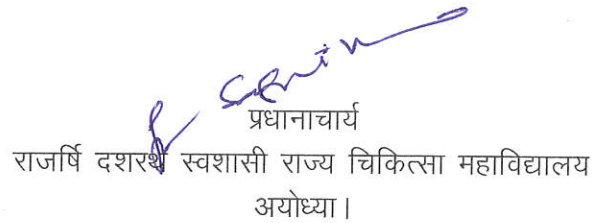 प्रधानाचार्य
राजर्षि दशरथ स्वशासी राज्य चिकित्सा महाविद्यालय
अयोध्या।